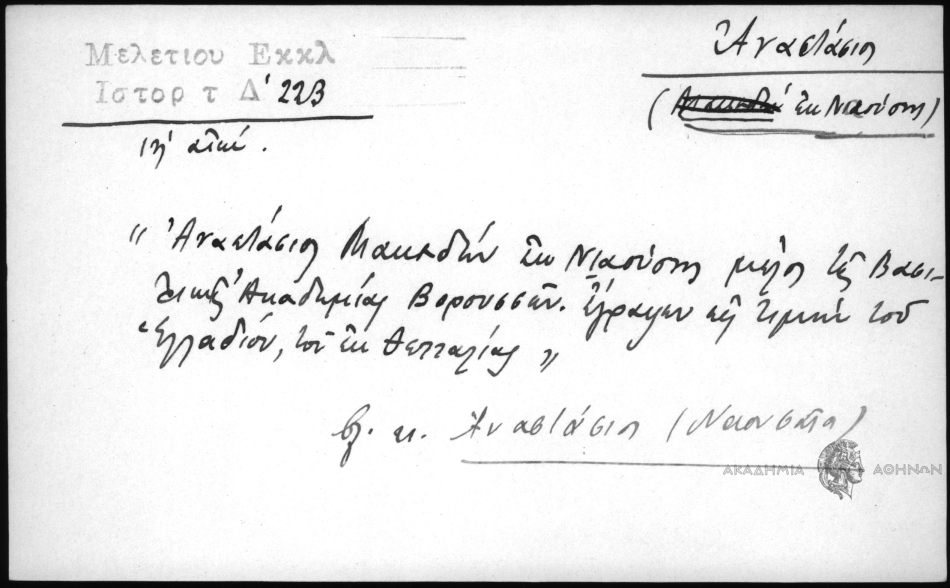 Μελετιου Εκκλ
Ιστορ τ Δ' 223
Ἀναστάσιος
(Μακεδὼν ἐκ Νιαούσης)
" Ἀναστάσιος Μακεδὼν ἐκ Νιαούσης μέλος τῆς Βασι-
λικῆς Ἀκαδημίας Βορουσσῶν. Ἔγραψεν εἰς τιμὴν τοῦ
Ἑλλαδίου, τοῦ ἐκ Θετταλίας "
βλ. κ. Ἀναστάσιος (Ναουσαῖος)
ΑΚΑΔΗΜΙΑ ΑΘΗΝΩΝ